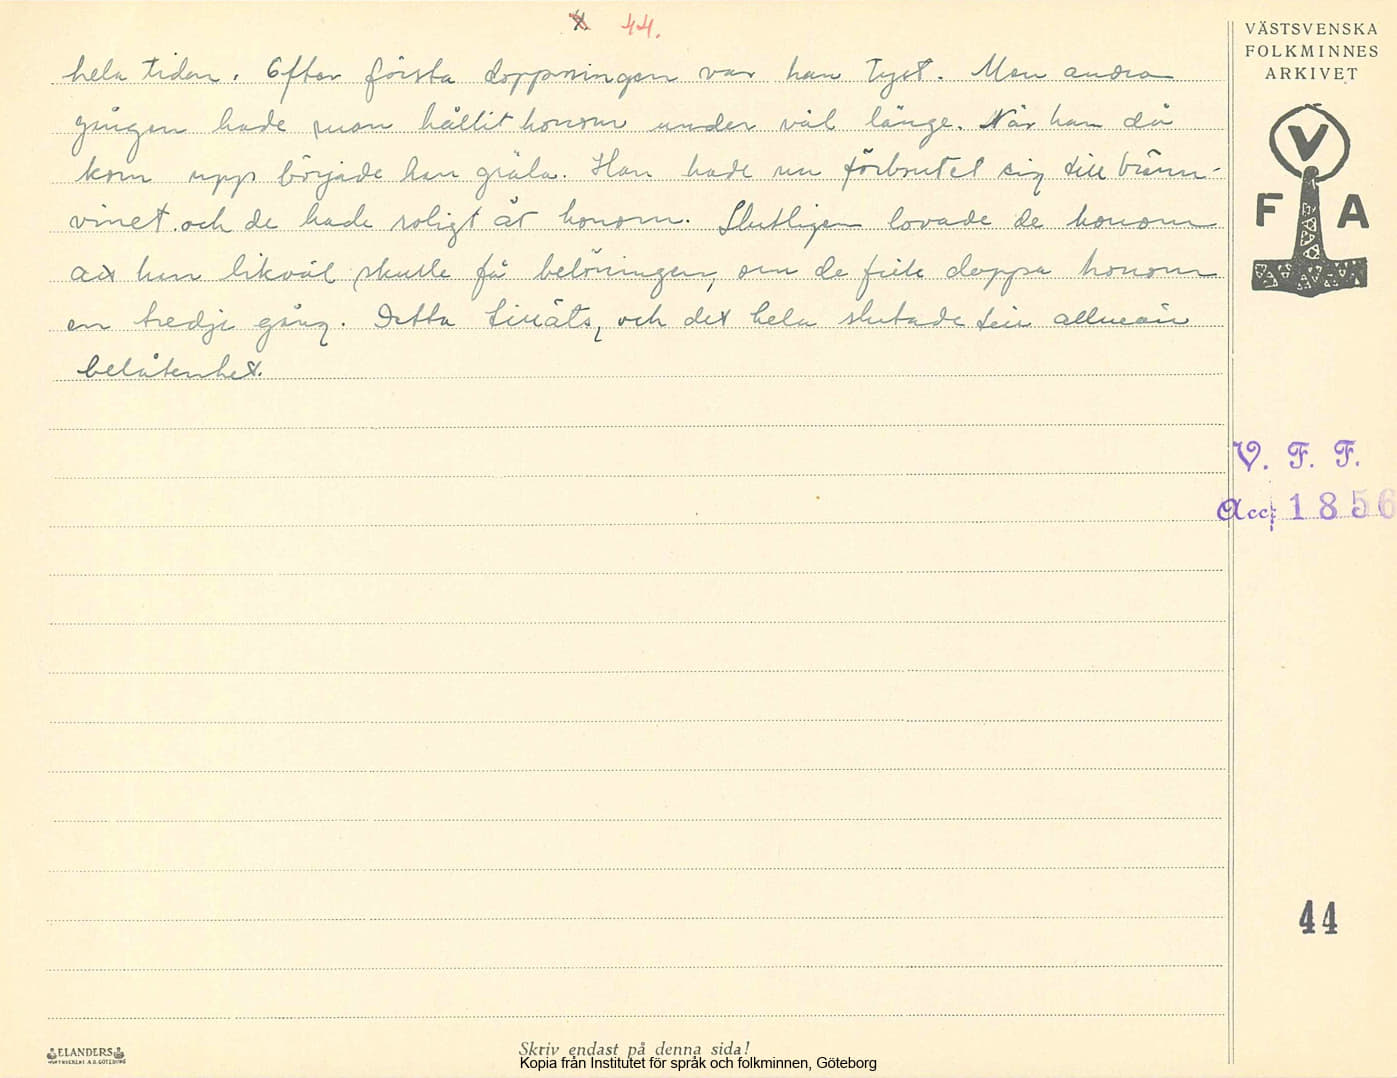 44.
hela tiden. Efter första doppningen var han tyst. Men andra
gången hade man hållit honom under väl länge. När han då
kom upp började han gräla. Han hade nu förbrutet sig till bränn-
vinet och de hade roligt åt honom. Slutligen lovade de honom
att han likväl skulle få belöningen, om de fick doppa honom
en tredje gång. Detta tilläts, och det hela slutade till allmän
belåtenhet.
VÄSTSVENSKA
FOLKMINNES
ARKIVET
V
F A
V. F. F.
Acc. 1856
44
ELANDERS
Skriv endast på denna sida!
Kopia från Institutet för språk och folkminnen, Göteborg